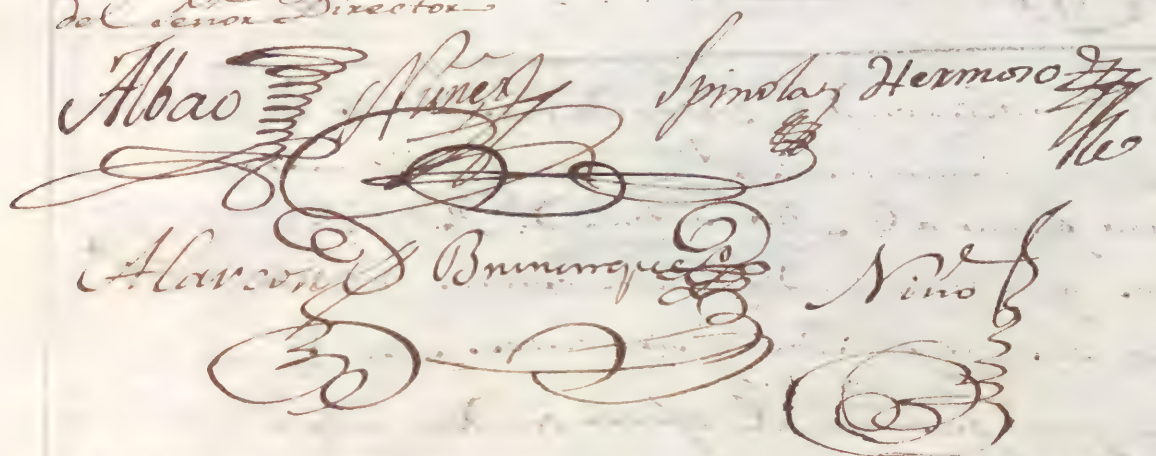 del Señor Director
Albao Nuñez Spinola Hermoso
Alarcon Niño